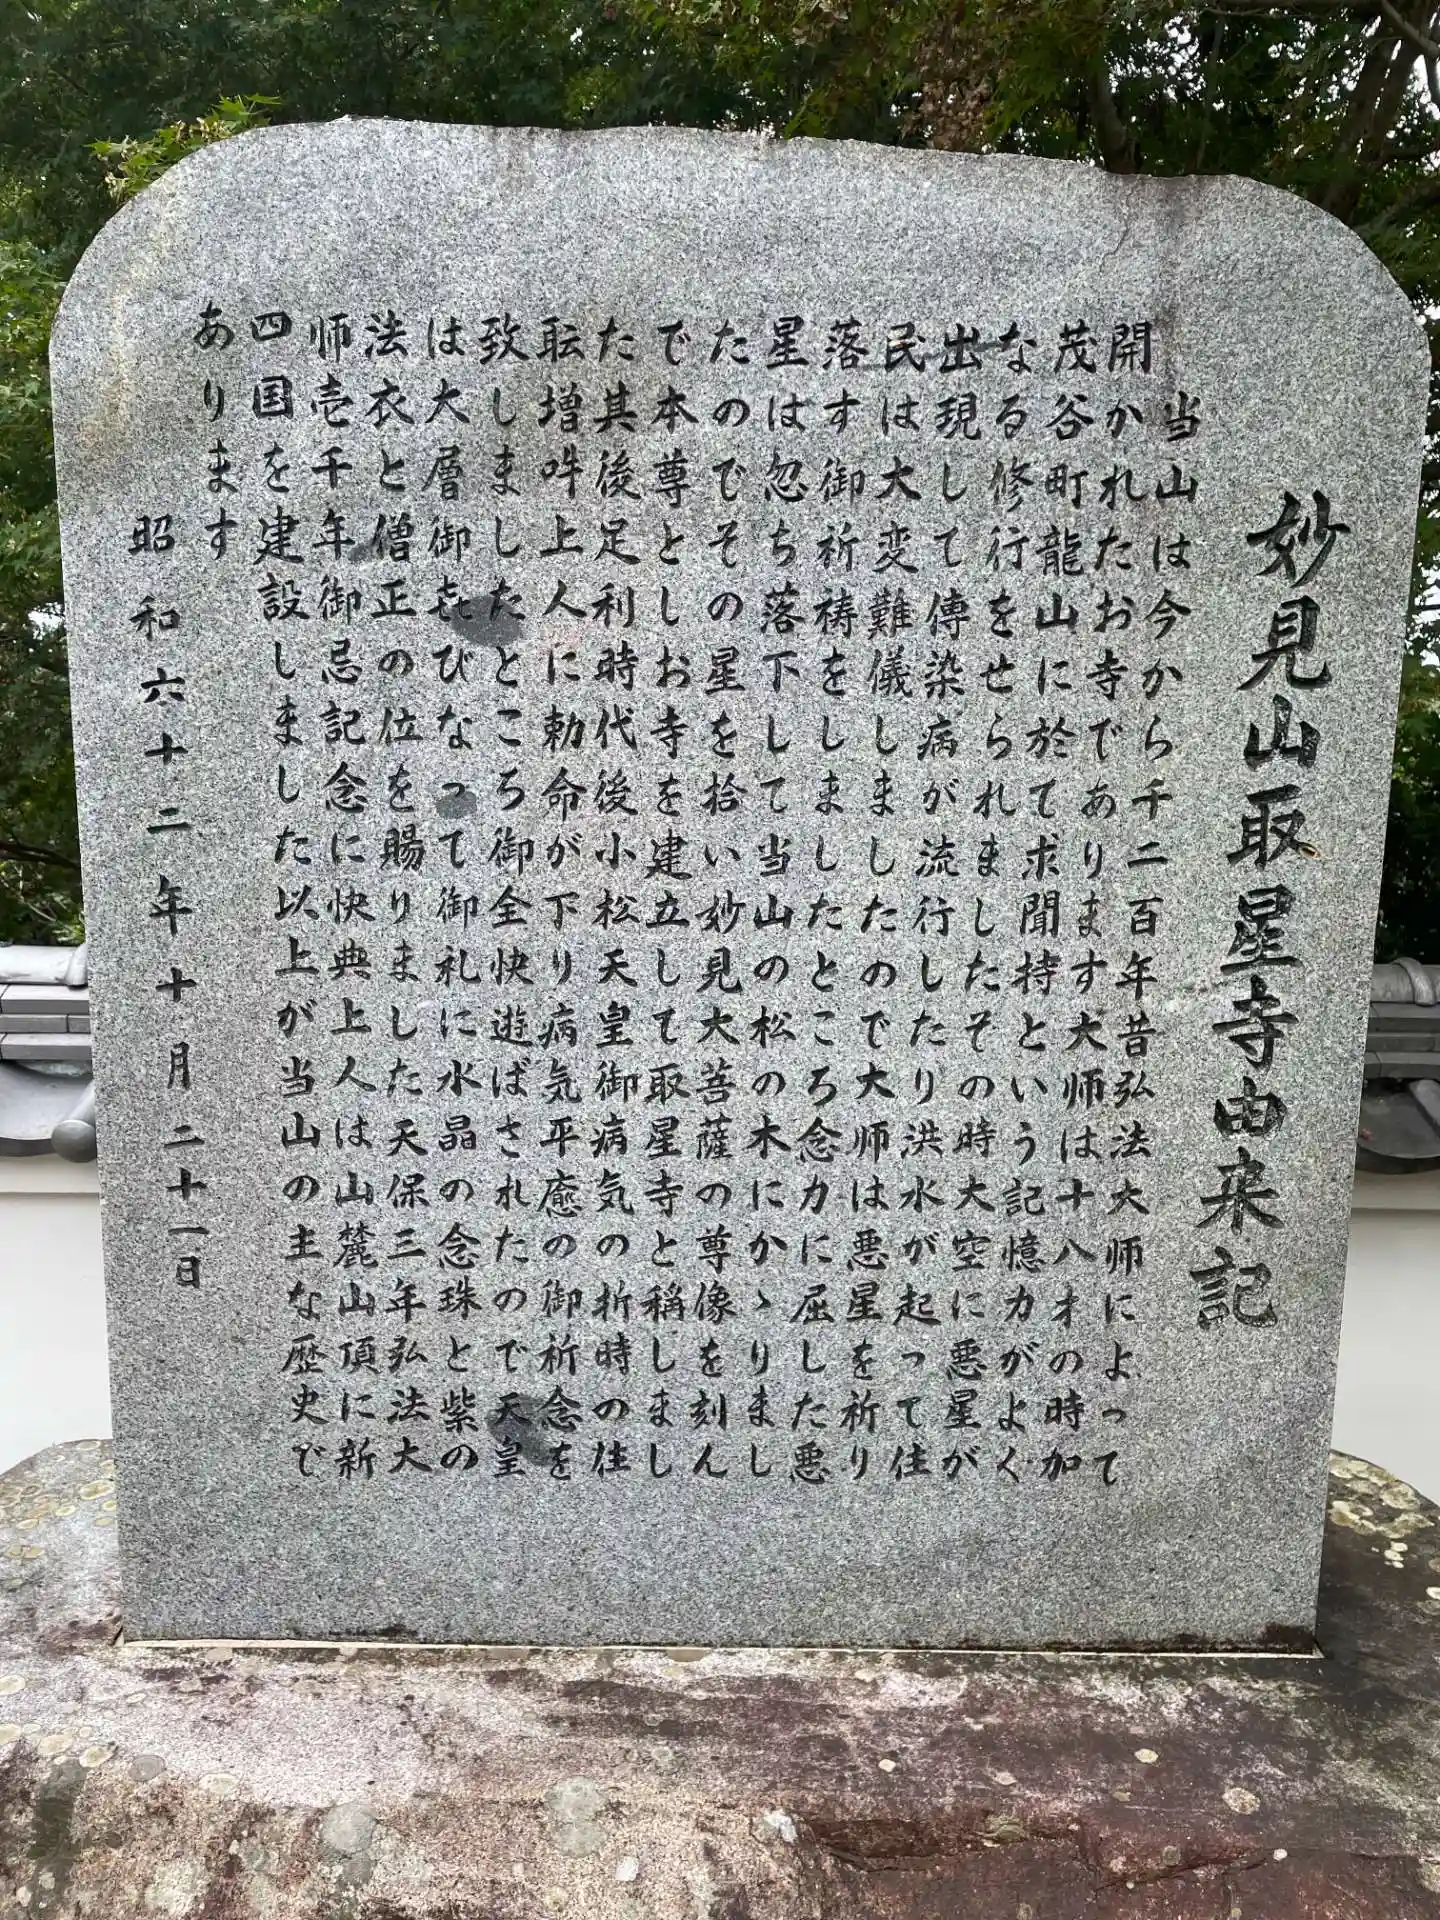 妙見山取星寺由来記
当山は今から千二百年昔弘法大师によって
開かれたお寺であります大师は十八才の時加
茂谷町龍山に於て求聞持という記憶力がよく
なる修行をせられましたその時大空に悪星が
出現して傳染病が流行したり洪水が起って住
民は大変難儀しましたので大师は悪星を祈り
落す御祈祷をしましたところ念力に屈した悪
星は忽ち落下して当山の松の木にかゝりまし
たのでその星を拾い妙見大菩薩の尊像を刻ん
で本尊としお寺を建立して取星寺と稱しまし
た其後足利時代後小松天皇御病気の折時の住
耘増吽上人に勅命が下り病気平癒の御祈念を
致しましたところ御全快遊ばされたので天皇
は大層御㐂びなって御礼に水晶の念珠と紫の
法衣と僧正の位を賜りました天保三年弘法大
师壱千年御忌記念に快典上人は山麓山頂に新
四国を建設しました以上が当山の主な歴史で
あります
昭和六十二年十月二十一日